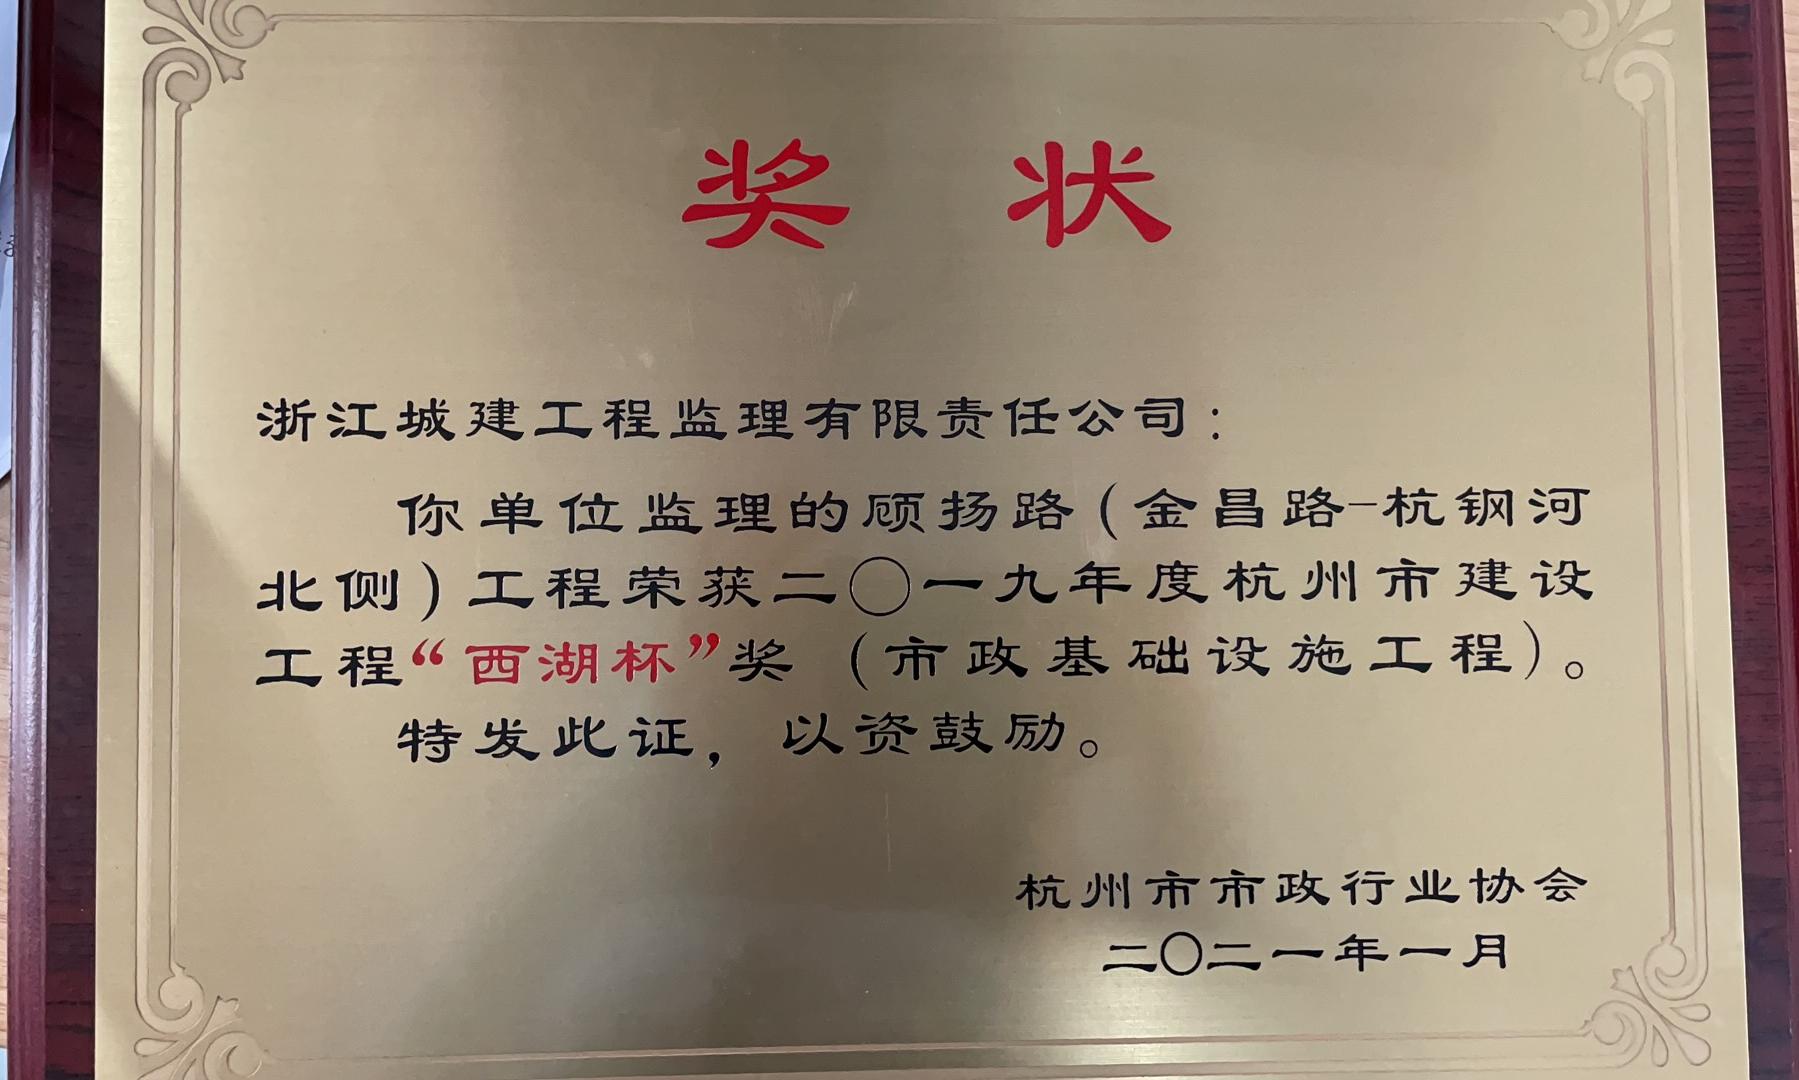 奖 状
浙江城建工程监理有限责任公司：
你单位监理的顾扬路（金昌路-杭钢河
北侧）工程荣获二〇一九年度杭州市建设
工程“西湖杯”奖（市政基础设施工程）。
特发此证，以资鼓励。
杭州市市政行业协会
二〇二一年一月